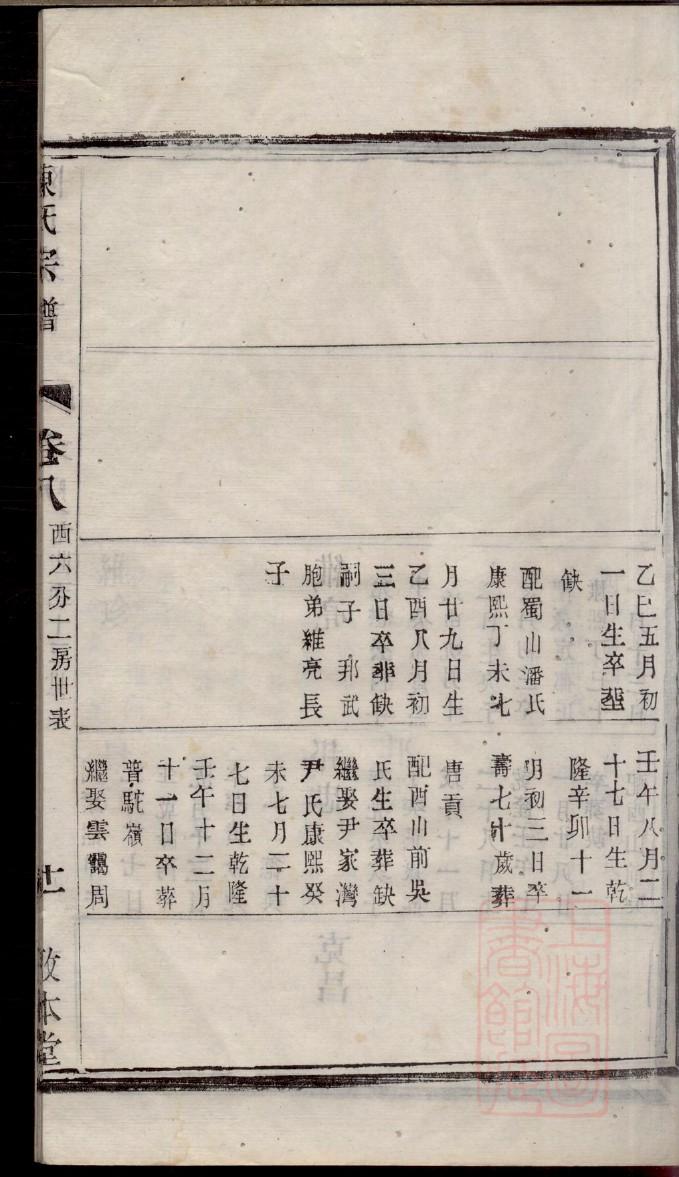 乙巳五月初
一日生卒塟
缺
配蜀山潘氏
康熙丁未七
月廿九日生
乙酉八月初
三日卒葬缺
嗣子邦武
胞弟維亮長
子
壬午八月二
十七日生乾
隆辛卯十一
月初三日卒
壽七十歲葬
唐貢
配西山前吳
氏生卒葬缺
繼娶尹家灣
尹氏康熙癸
未七月二十
七日生乾隆
壬午十二月
十一日卒葬
普駝嶺
繼娶雲鶴周
陳氏宗譜
卷八
西六分二房世表
十一
敦本堂
上海圖書館藏